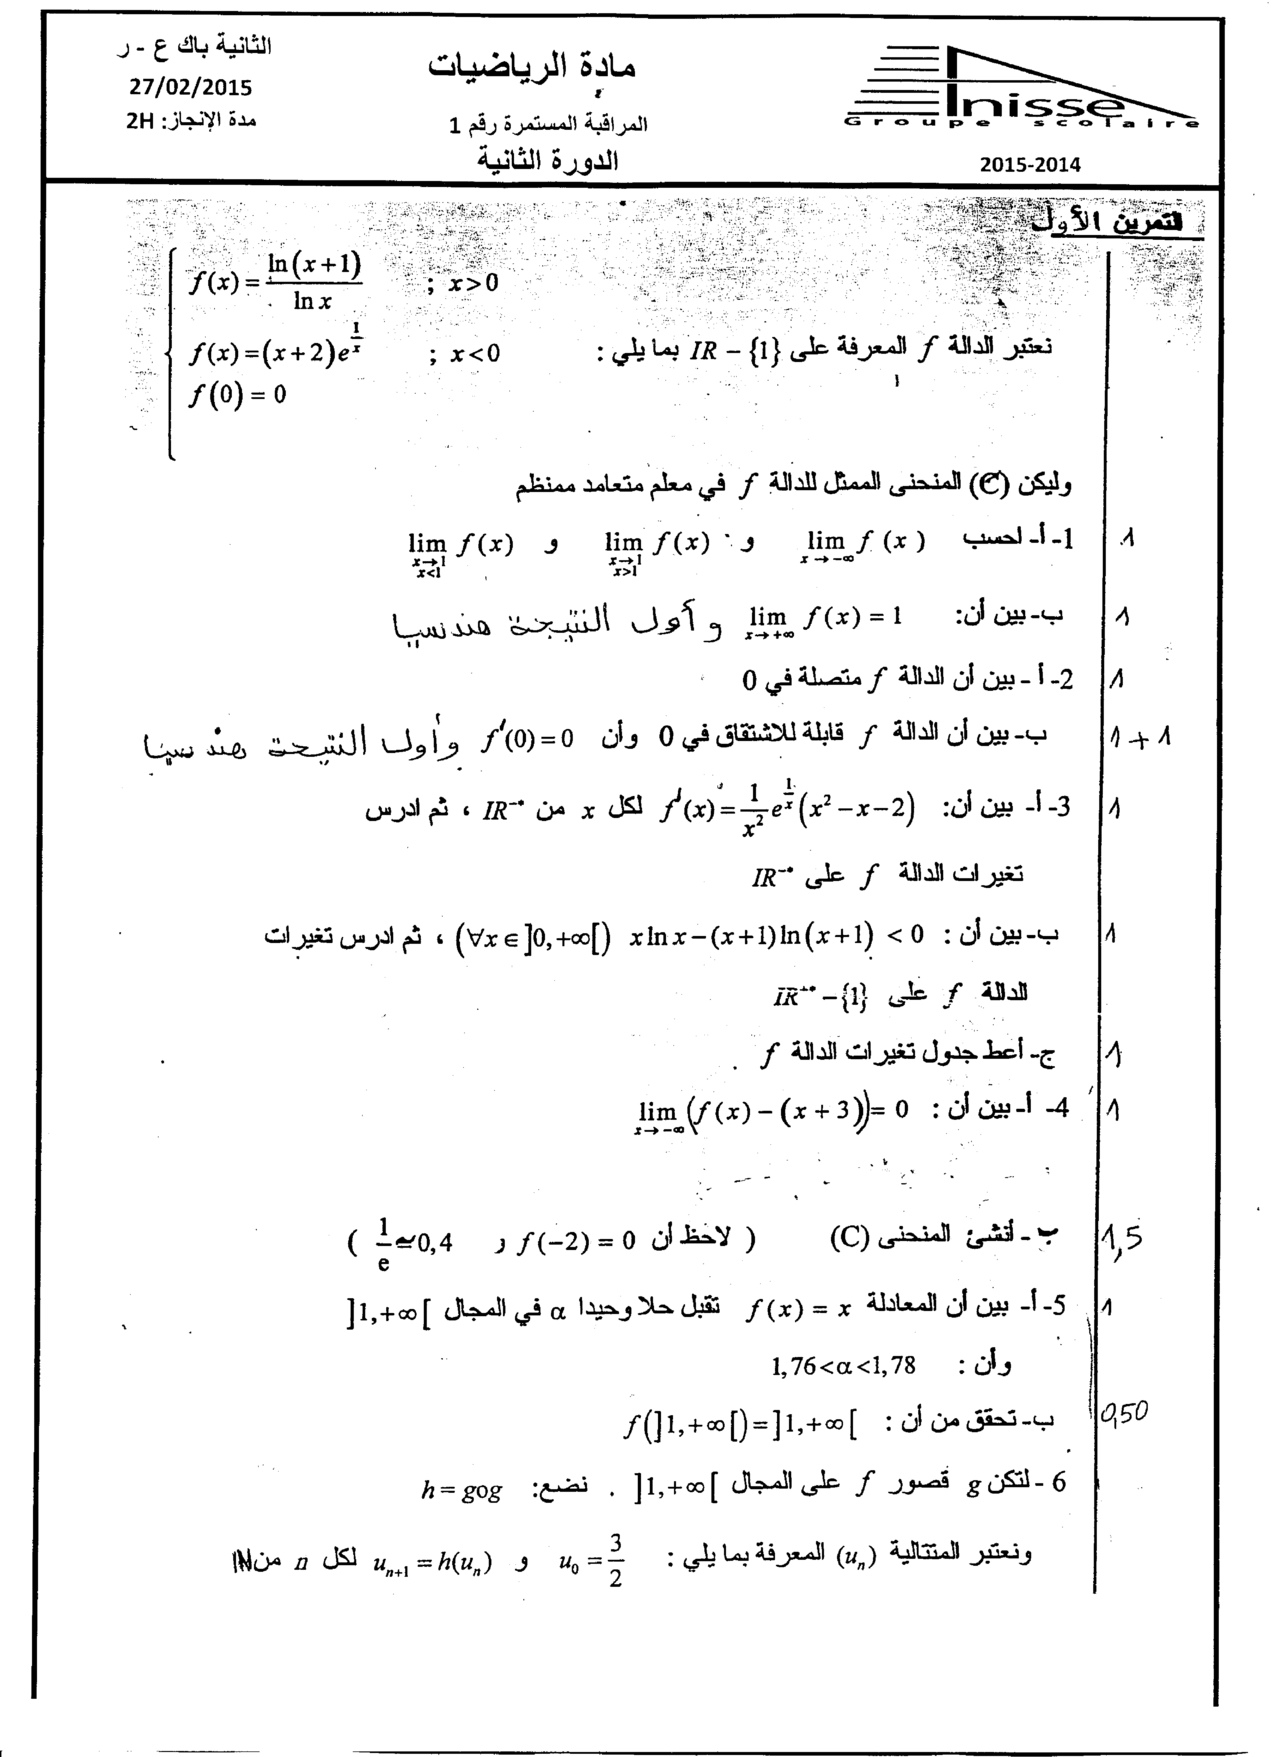 الثانية باك ع - ر
27/02/2015
مدة الإنجاز: 2H
مادة الرياضيات
المراقبة المستمرة رقم 1
الدورة الثانية
Inisse
Groupe scolaire
2015-2014
التمرين الأول
نعتبر الدالة f المعرفة على IR − {1} بما يلي :
f(x) = ln(x+1)/ln x ; x>0
f(x) = (x+2)e^{1/x} ; x<0
f(0) = 0
وليكن (C) المنحنى الممثل للدالة f في معلم متعامد ممنظم
1 1-أ- احسب lim_{x→−∞} f(x) و lim_{x→1, x>1} f(x) و lim_{x→1, x<1} f(x)
1 ب- بين أن: lim_{x→+∞} f(x) = 1 و أول النتيجة هندسيا
1 2- أ - بين أن الدالة f متصلة في 0
1+1 ب- بين أن الدالة f قابلة للاشتقاق في 0 وأن f'(0)=0 وأول النتيجة هندسيا
1 3- أ- بين أن: f'(x) = 1/x² e^{1/x}(x²−x−2) لكل x من IR⁻* ، ثم ادرس
تغيرات الدالة f على IR⁻*
1 ب- بين أن : x ln x−(x+1)ln(x+1) < 0 (∀x∈]0,+∞[) ، ثم ادرس تغيرات
الدالة f على IR⁺*−{1}
1 ج- أعط جدول تغيرات الدالة f .
1 4- أ- بين أن : lim_{x→−∞}(f(x)−(x+3))= 0
1,5 ب- أنشئ المنحنى (C) ( لاحظ أن f(−2)=0 و 1/e ≃0,4 )
1 5- أ- بين أن المعادلة f(x) = x تقبل حلا وحيدا α في المجال ]1,+∞[
وأن : 1,76<α<1,78
0,50 ب- تحقق من أن : f(]1,+∞[)=]1,+∞[
6 - لتكن g قصور f على المجال ]1,+∞[ . نضع: h = gog
ونعتبر المتتالية (u_n) المعرفة بما يلي : u_0 = 3/2 و u_{n+1} = h(u_n) لكل n من IN